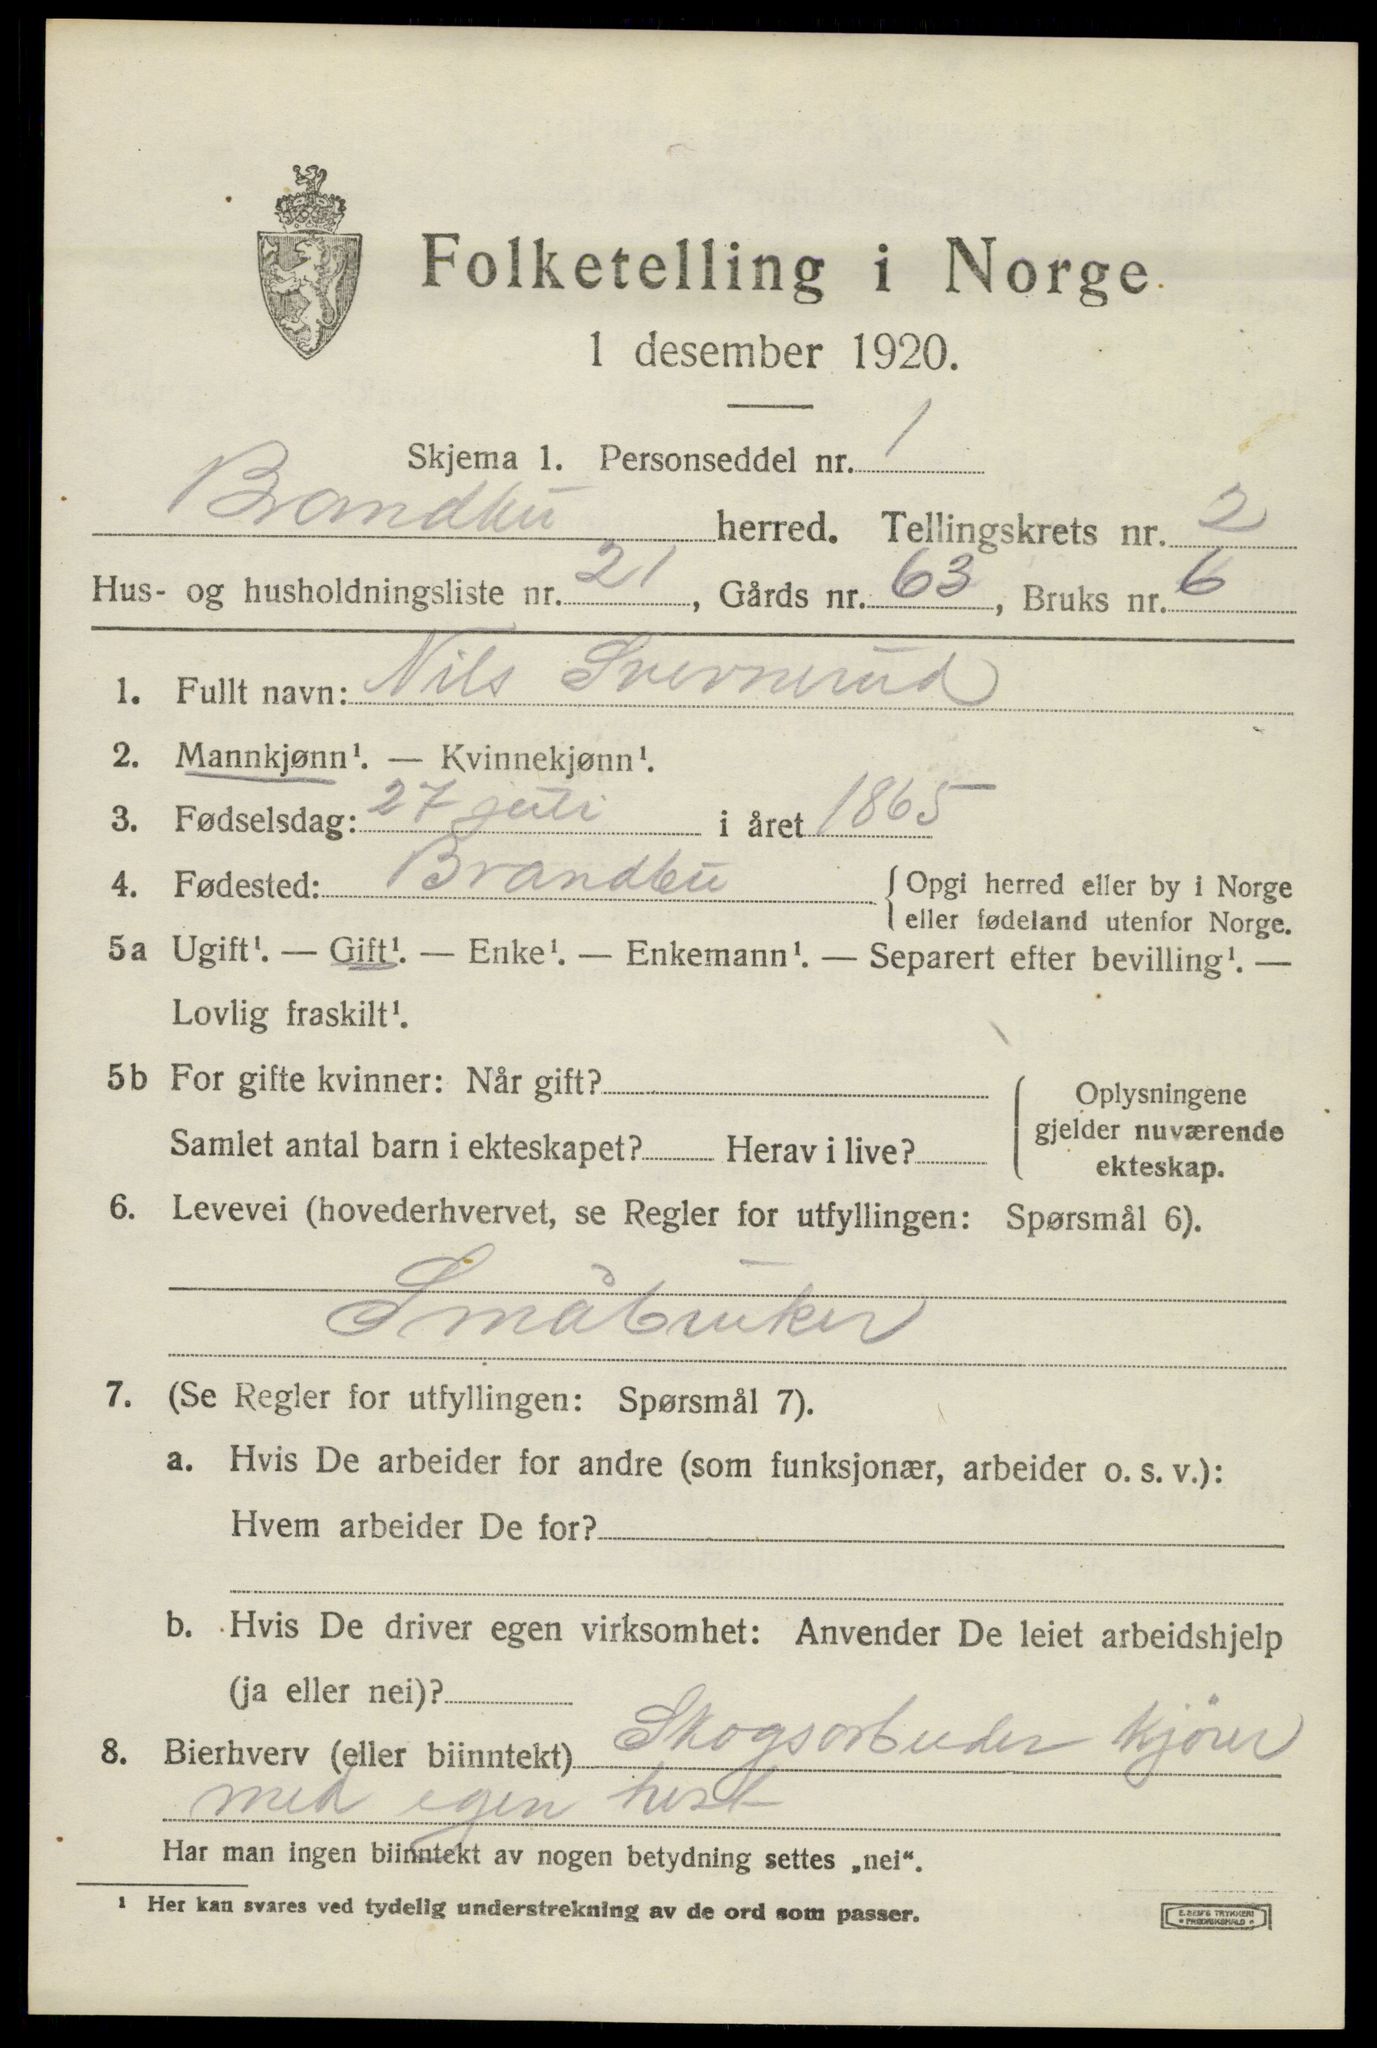 Folketelling i Norge
1 desember 1920.
Skjema 1. Personseddel nr. 1
Brandbu herred. Tellingskrets nr. 2
Hus- og husholdningsliste nr. 21, Gårds nr. 63, Bruks nr. 6
1. Fullt navn: Nils
2. Mannkjønn¹. — Kvinnekjønn¹.
3. Fødselsdag: 27 juli i året 1865
4. Fødested: Brandbu { Opgi herred eller by i Norge
eller fødeland utenfor Norge.
5a Ugift¹. — Gift¹. — Enke¹. — Enkemann¹. — Separert efter bevilling¹. —
Lovlig fraskilt¹.
5b For gifte kvinner: Når gift? { Oplysningene
gjelder nuværende
Samlet antal barn i ekteskapet? Herav i live? ekteskap.
6. Levevei (hovederhvervet, se Regler for utfyllingen: Spørsmål 6).
Småbruker
7. (Se Regler for utfyllingen: Spørsmål 7).
a. Hvis De arbeider for andre (som funksjonær, arbeider o. s. v.):
Hvem arbeider De for?
b. Hvis De driver egen virksomhet: Anvender De leiet arbeidshjelp
(ja eller nei)?
8. Bierhverv (eller biinntekt) Skogsarbeider kjörer
med egen hest
Har man ingen biinntekt av nogen betydning settes „nei“.
¹ Her kan svares ved tydelig understrekning av de ord som passer.
E. SEM'S TRYKKERI
* FREDRIKSHALD *